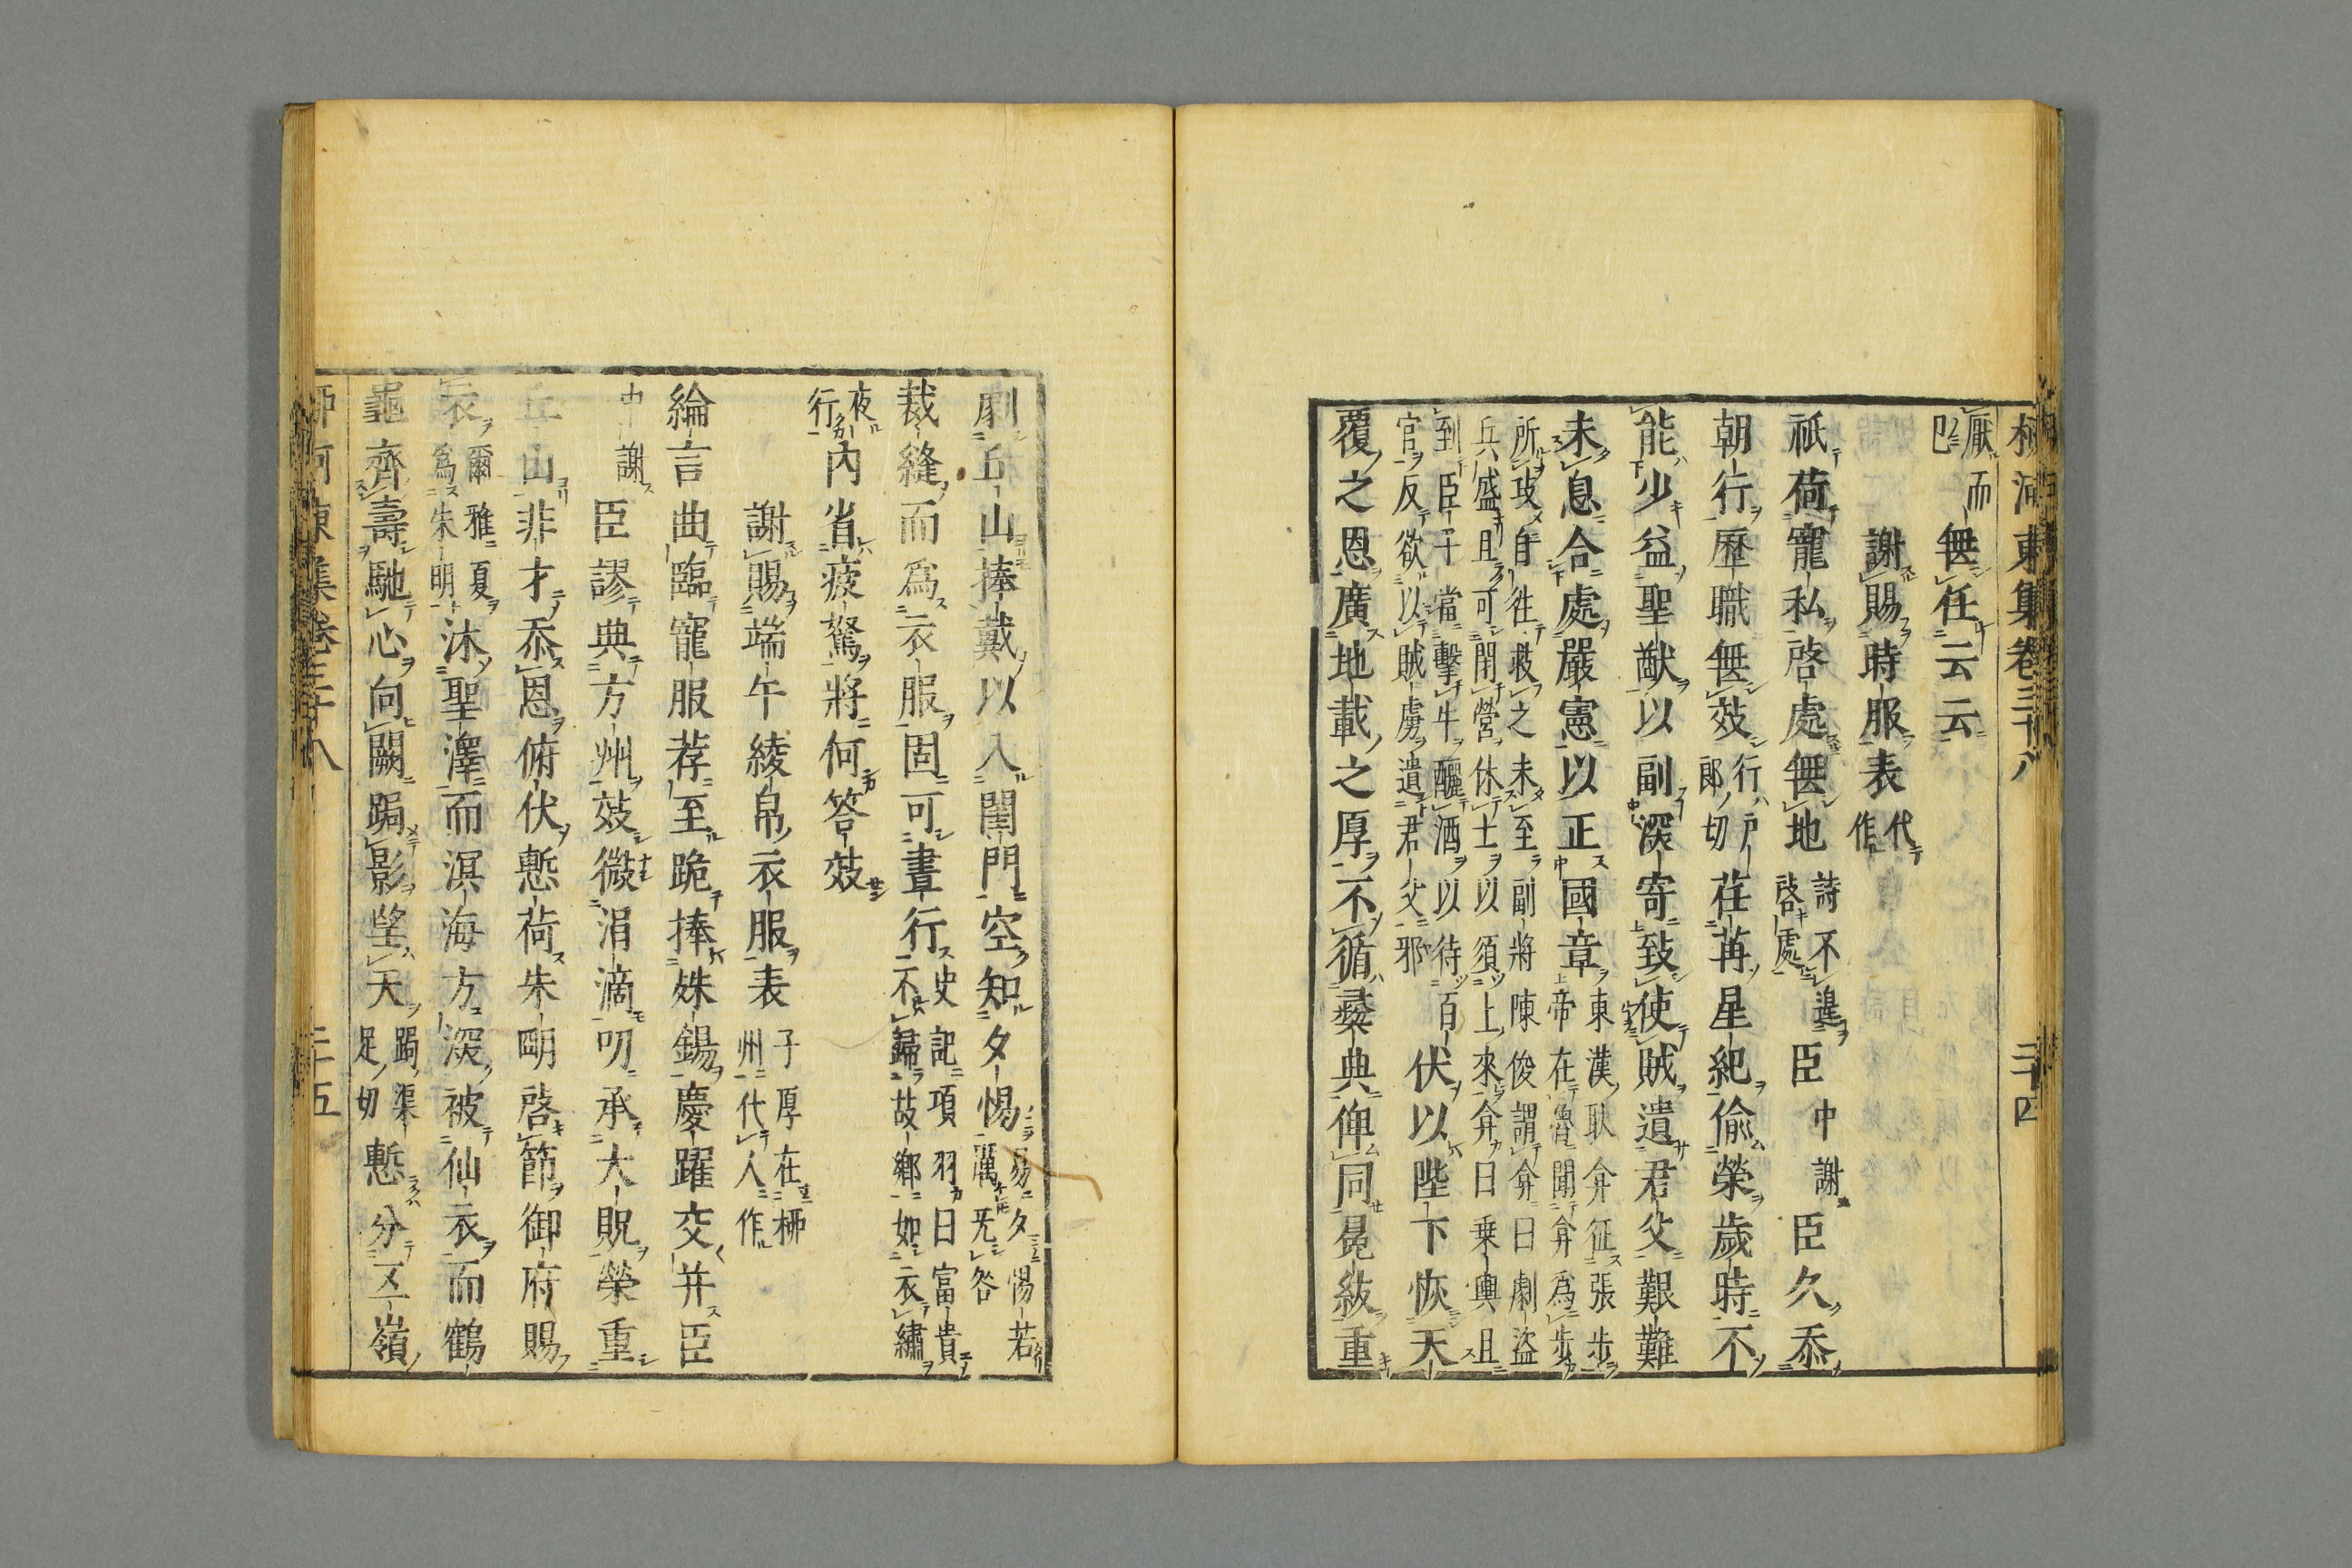 柳河東集卷三十八 三十四
厭而已無任云云
謝賜時服表代作
祇荷寵私啓處無地詩不遑啓處臣中謝臣久忝
朝行歷職無效行戸郎切荏苒星紀偷榮歲時不
能少益聖猷以副深寄致使賊遺君父艱難
未息合處嚴憲以正國章東漢耿弇征張步帝在魯聞弇爲步
所攻自往救之未至副將陳俊謂弇曰劇盜
兵盛且可閉營休士以須上來弇曰乘輿且
到臣子當擊牛釃酒以待百
官反欲以賊虜遺君父邪伏以陛下恢天
覆之恩廣地載之厚不循彝典俾同冕紱重
劇丘山捧戴以入閨門空知夕惕易夕惕若厲无咎
裁縫而爲衣服固可晝行史記項羽曰富貴不歸故鄉如衣繡
夜行內省疲駑將何答效
謝賜端午綾帛衣服表子厚在柳州代人作
綸言曲臨寵服荐至跪捧姝錫慶躍交并臣
中謝臣謬典方州效微涓滴叨承大貺榮重
丘山非才忝恩俯伏慙荷朱明啓節御府賜
衣爾雅夏爲朱明沐聖澤而溟海方深被仙衣而鶴
龜齊壽馳心向闕跼影望天跼渠足切慙分五嶺
柳河東集卷三十八 三十五